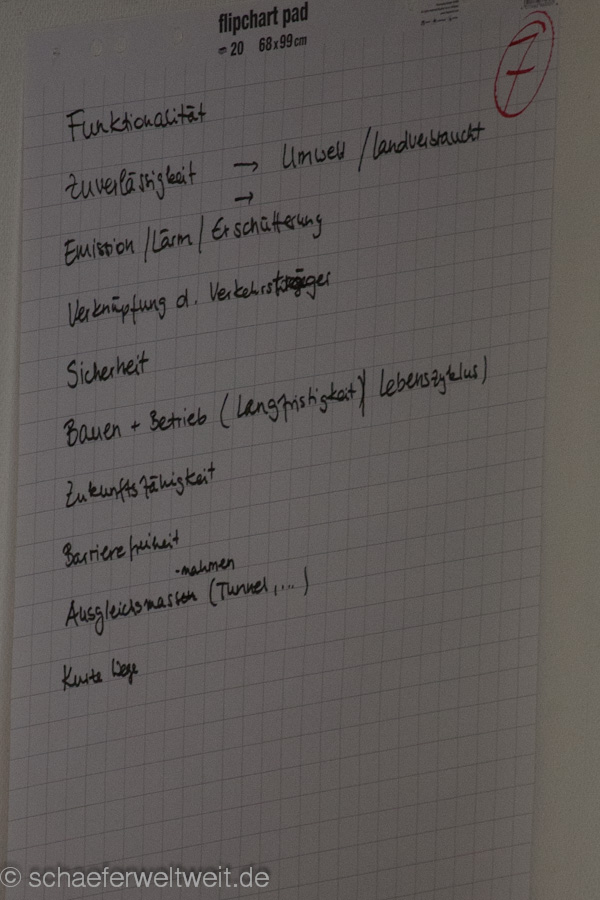 flipchart pad
20 68x99cm
7
Funktionalität
Zuverlässigkeit → Umwelt / Landverbraucht
→
Emission / Lärm / Erschütterung
Verknüpfung d. Verkehrsträger
Sicherheit
Bauen + Betrieb (Langfristigkeit / Lebenszyklus)
Zukunftsfähigkeit
Barrierefreiheit
-nahmen
Ausgleichsmassen (Tunnel, ...)
Kurze Wege
© schaeferweltweit.de